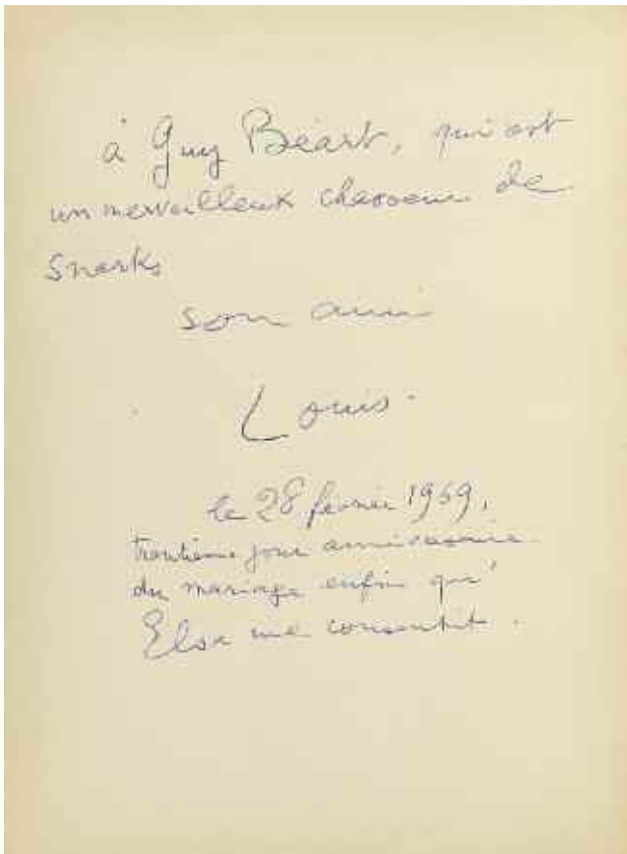 à Guy Béart, qui est
un merveilleux chasseur de
Snarks
son ami
Louis.
le 28 février 1969,
trentième jour anniversaire
du mariage enfin qu'
Elsa me consentit.